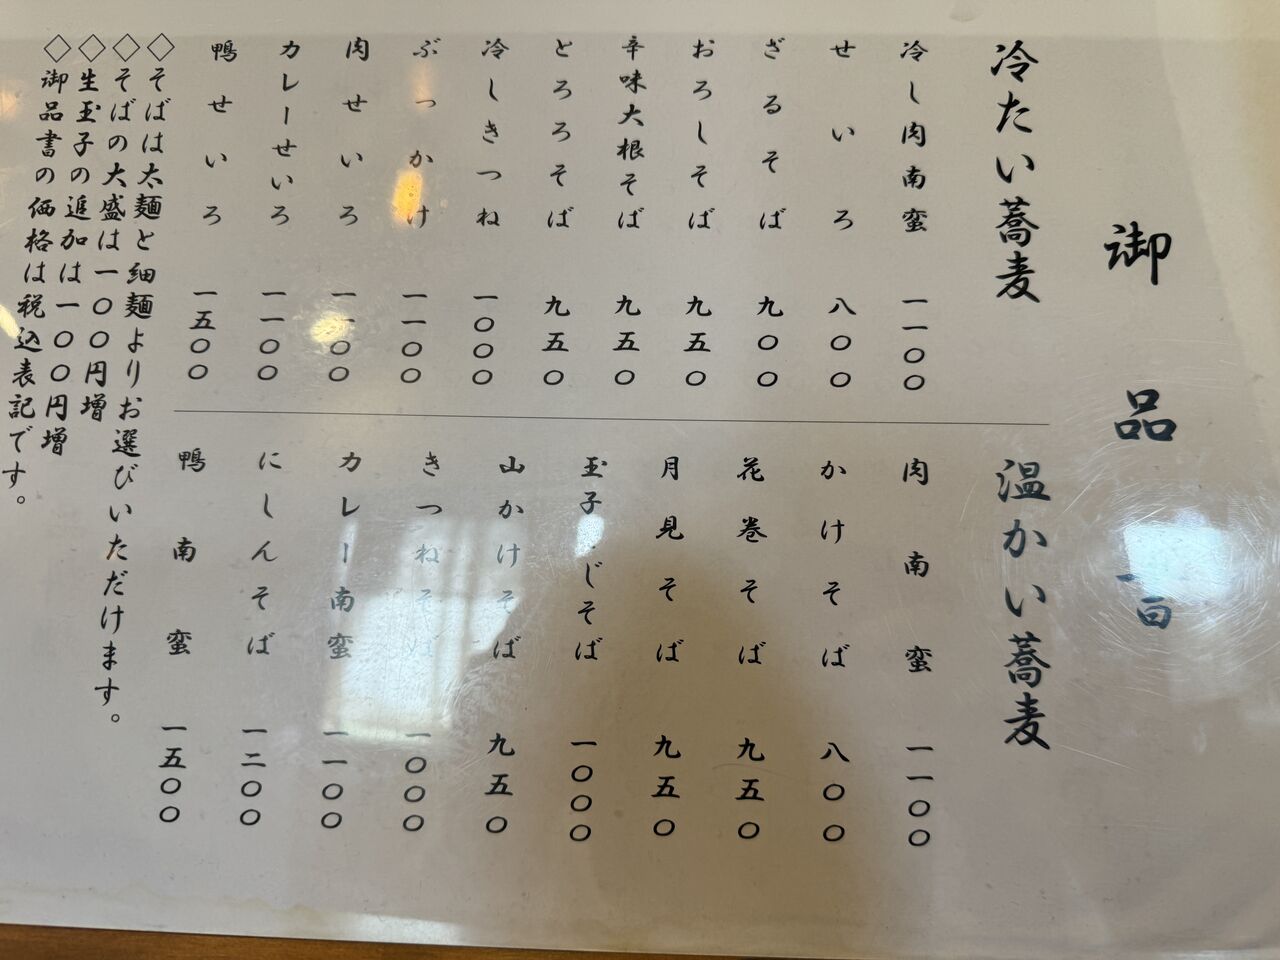 御品書
冷たい蕎麦
冷し肉南蛮 一一〇〇
せいろ 八〇〇
ざるそば 九〇〇
おろしそば 九五〇
辛味大根そば 九五〇
とろろそば 九五〇
冷しきつね 一〇〇〇
ぶっかけ 一一〇〇
肉せいろ 一一〇〇
カレーせいろ 一一〇〇
鴨せいろ 一五〇〇
温かい蕎麦
肉南蛮 一一〇〇
かけそば 八〇〇
花巻そば 九五〇
月見そば 九五〇
玉子とじそば 一〇〇〇
山かけそば 九五〇
きつねそば 一〇〇〇
カレー南蛮 一一〇〇
にしんそば 一二〇〇
鴨南蛮 一五〇〇
◇そばは太麺と細麺よりお選びいただけます。
◇そばの大盛は一〇〇円増
◇生玉子の追加は一〇〇円増
◇御品書の価格は税込表記です。